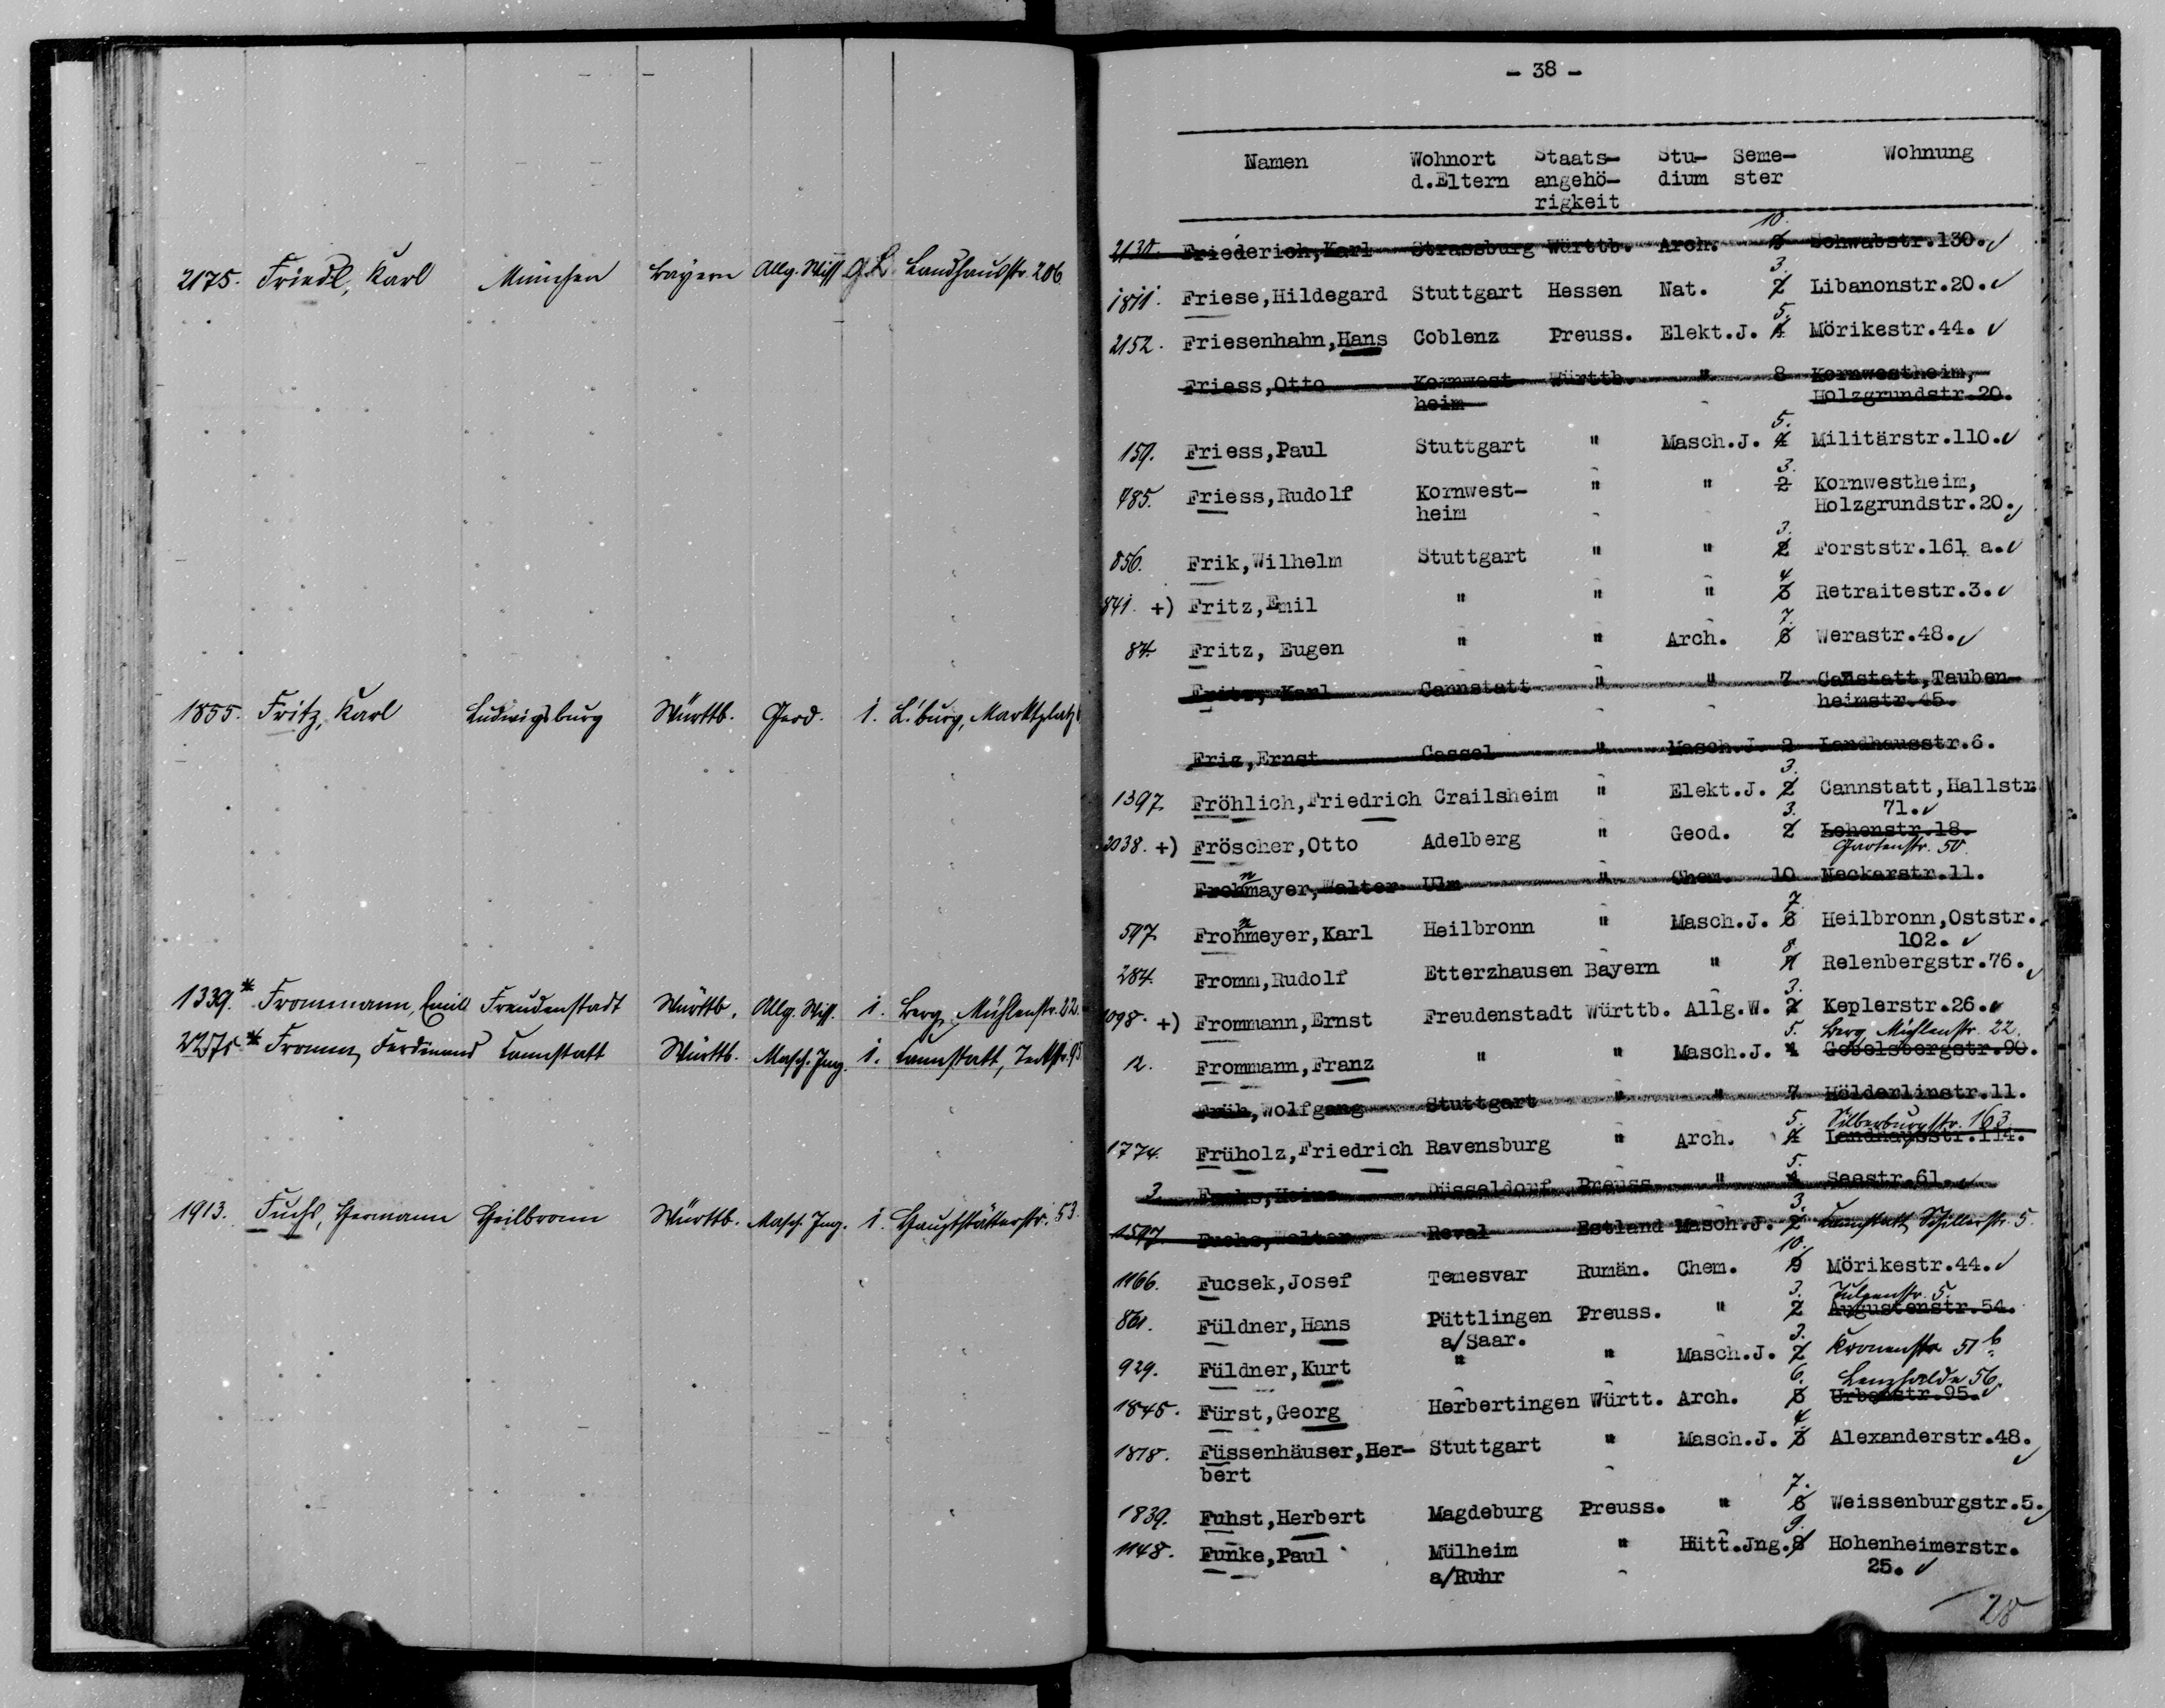 2175. Friedl, Karl München Bayern Allg. Wiss. G.L. Landhausstr. 206
1855. Fritz, Karl Ludwigsburg Württb. Geod. 1. L'burg, Marktplatz
1339.* Frommann, Emil Freudenstadt Württb. Allg. Wiss. 1. Berg, Mühlenstr. 22.
2257.* Fromm, Ferdinand Cannstatt Württb. Masch. Ing. 1. Cannstatt,
1913. Fuchs, Hermann Heilbronn Württb. Masch. Ing. 1. Hauptstätterstr. 53.
- 38 -
Namen Wohnort Staats- Stu- Seme- Wohnung
d.Eltern angehö- dium ster
rigkeit
10.
2130. Friederich,Karl Strassburg Württb. Arch. Schwabstr.130.
3.
1811. Friese,Hildegard Stuttgart Hessen Nat. 2 Libanonstr.20.
5.
2152. Friesenhahn,Hans Coblenz Preuss. Elekt.J. 4 Mörikestr.44.
Friess,Otto Kornwest Württb. " 8 Kornwestheim,
heim Holzgrundstr.20.
5.
159. Friess,Paul Stuttgart " Masch.J. 4 Militärstr.110.
3.
485. Friess,Rudolf Kornwest- " " 2 Kornwestheim,
heim Holzgrundstr.20.
3.
856. Frik,Wilhelm Stuttgart " " 2 Forststr.161 a.
4
841. +) Fritz,Emil " " " 3 Retraitestr.3.
7.
84. Fritz, Eugen " " Arch. 6 Werastr.48.
Fritz, Karl Cannstatt " " 7 Canstatt,Tauben-
heimstr.45.
Friz,Ernst Cassel " Masch.J. 2 Landhausstr.6.
3.
1397. Fröhlich,Friedrich Crailsheim " Elekt.J. 2 Cannstatt,Hallstr.
3. 71.
2038. +) Fröscher,Otto Adelberg " Geod. 2 Lehenstr.18.
Gartenstr. 50.
n
Frohmayer,Walter Ulm " Chem. 10 Neckarstr.11.
n 7.
597. Frohmeyer,Karl Heilbronn " Masch.J. 6 Heilbronn,Oststr.
8. 102.
284. Fromm,Rudolf Etterzhausen Bayern " 7 Relenbergstr.76.
3.
1098. +) Frommann,Ernst Freudenstadt Württb. Allg.W. 2 Keplerstr.26.
5. Berg, Mühlenstr. 22.
12. Frommann,Franz " " Masch.J. 4 Gebelsbergstr.90.
Früh,Wolfgang Stuttgart " " 7 Hölderlinstr.11.
5. Silberburgstr. 163.
1774. Früholz,Friedrich Ravensburg " Arch. 4 Landhausstr.114.
5.
3. Fuchs,Heinz Düsseldorf Preuss. " 4 Seestr.61.
3.
1597. Fuchs,Walter Reval Estland Masch.J. 2 Cannstatt, Schillerstr. 5.
10.
1166. Fucsek,Josef Temesvar Rumän. Chem. 9 Mörikestr.44.
3. Tulpenstr. 5.
861. Füldner,Hans Püttlingen Preuss. " 2 Augustenstr.54.
a/Saar. 3.
929. Füldner,Kurt " " Masch.J. 2 Kronenstr. 51 b.
6. Lenzhalde 56.
1845. Fürst,Georg Herbertingen Württ. Arch. 5 Urbanstr.95.
4.
1878. Füssenhäuser,Her- Stuttgart " Masch.J. 3 Alexanderstr.48.
bert
7.
1839. Fuhst,Herbert Magdeburg Preuss. " 6 Weissenburgstr.5.
9.
1148. Funke,Paul Mülheim " Hütt.Jng. 8 Hohenheimerstr.
a/Ruhr 25.
28